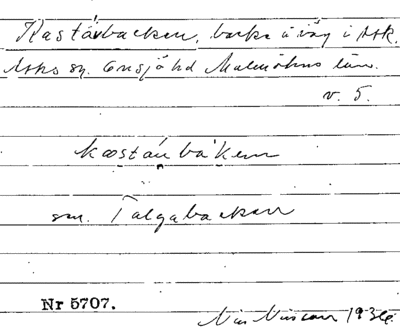 Kastánbacken, backe å väg i Ask.
Asks sn. Onsjö hd Malmöhus län.
v. 5.
kastán bakenn
sm. Talgabacken
Nr 5707.
Nils Nilsson 1934